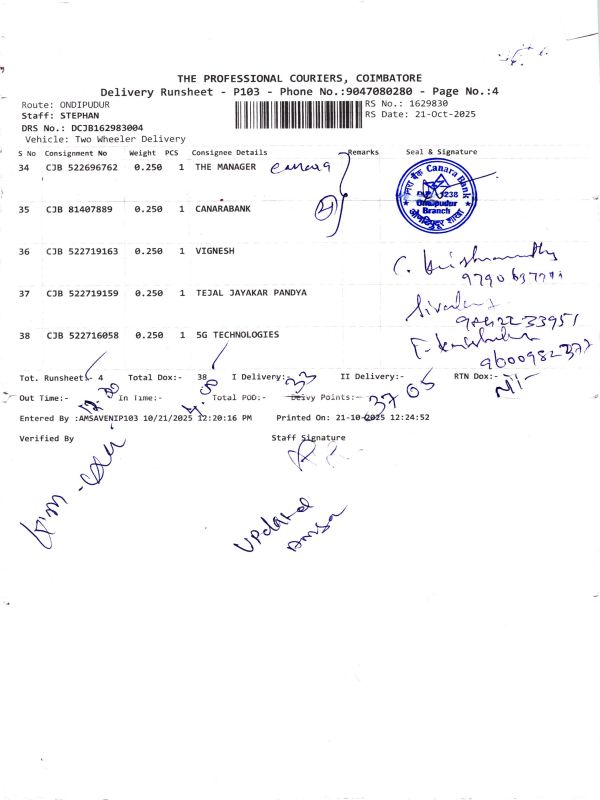 THE PROFESSIONAL COURIERS, COIMBATORE
Delivery Runsheet - P103 - Phone No.:9047080280 - Page No.:4
Route: ONDIPUDUR
RS No.: 1629830
Staff: STEPHAN
RS Date: 21-Oct-2025
DRS No.: DCJB162983004
Vehicle: Two Wheeler Delivery
S No Consignment No Weight PCS Consignee Details Remarks Seal & Signature
34 CJB 522696762 0.250 1 THE MANAGER Canara
Canara Bank
1238
Ondipudur
Branch
35 CJB 81407889 0.250 1 CANARABANK
36 CJB 522719163 0.250 1 VIGNESH
37 CJB 522719159 0.250 1 TEJAL JAYAKAR PANDYA
9842233951
38 CJB 522716058 0.250 1 5G TECHNOLOGIES
9600982377
Tot. Runsheet:- 4 Total Dox:- 38 I Delivery:- 33 II Delivery:- 05 RTN Dox:- Nil
Out Time:- 12.30 In Time:- 4.00 Total POD:- Delvy Points:- 37
Entered By :AMSAVENIP103 10/21/2025 12:20:16 PM Printed On: 21-10-2025 12:24:52
Verified By Staff Signature
Updated
Amsa